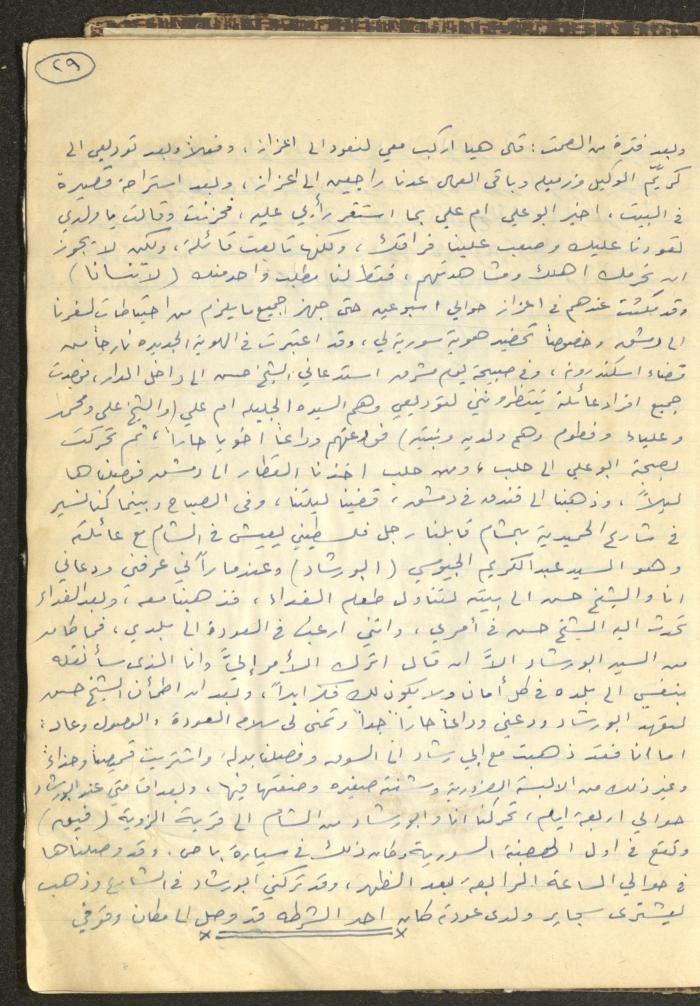 ٢٩
وبعد فترة من الصمت: قال هيا اركب معي لنعود الى اعزاز، وفعلاً وبعد توديعي الى
كريّم الوكيل وزميله وباقي العمال عدنا راجعين الى اعزاز، وبعد استراحة قصيرة
في البيت، اخبر ابو علي ام علي بما استقر رأيي عليه، فحزنت وقالت يا ولدي
تعودنا عليك وصعب علينا فراقك، ولكنها تابعت قائلة، ولكن لا يجوز
ان نحرمك اهلك ومشاهدتهم، فقط لنا مطلب واحد منك (لا تنسانا)
وقد مكثت عندهم في اعزاز حوالي اسبوعين حتى جهز جميع ما يلزم من احتياطات لسفرنا
الى دمشق وخصوصاً تحضير هوية سورية لي، وقد اعتبرت في الهوية الجديده نازحاً من
قضاء اسكندرونة، وفي صبيحة يوم مشرق استدعاني الشيخ حسن الى داخل الدار، فوجدت
جميع افراد عائلته ينتظرونني لتوديعي وهم السيده الجليله ام علي (والشيخ علي ومحمد
وعلياء وفطوم وهم ولديه وبنتيه) فودعتهم وداعاً اخويا حاراً، ثم تحركت
بصحبة ابو علي الى حلب، ومن حلب اخذنا القطار الى دمشق فوصلناها
ليلاً، وذهبنا الى فندق في دمشق، قضينا ليلتنا، وفي الصباح وبينما كنا نسير
في شارع الحميدية بالشام قابلنا رجل فلسطيني يعيش في الشام مع عائلته
وهو السيد عبدالكريم الجيوسي (ابو رشاد) وعندما رآني عرفني ودعاني
انا والشيخ حسن الى بيته لتناول طعام الغداء، فذهبنا معه، وبعد الغداء
تحدث اليه الشيخ حسن في أمري، وانني ارغب في العودة الى بلدي، فما كان
من السيد ابو رشاد الاّ ان قال اترك الأمر إليّ وانا الذي سأنقله
بنفسي الى بلده في كل أمان ولا يكون لك فكر ابداً، وبعد ان اطمأن الشيخ حسن
لتعهد ابو رشاد ودعني وداعاً حاراً جداً وتمنى لي سلام العودة والوصول وعاد:
اما انا فقد ذهبت مع ابي رشاد الى السوق وفصلنا بدلة واشتريت قميصاً وحذاءً
وغير ذلك من الالبسة الضرورية وشنتة صغيره وضعتها فيها، وبعد اقامتي عند ابو رشاد
حوالي اربعة ايام، تحركنا انا وابو رشاد من الشام الى قرية الزوية (فيق)
وتقع في اول الهضبة السورية وكان ذلك في سيارة باص. وقد وصلناها
في حوالي الساعة الرابعة بعد الظهر، وقد تركني ابو رشاد في الشارع وذهب
ليشترى سجاير ولدى عودته كان احد الشرطه قد وصل الى مكان وقوفي